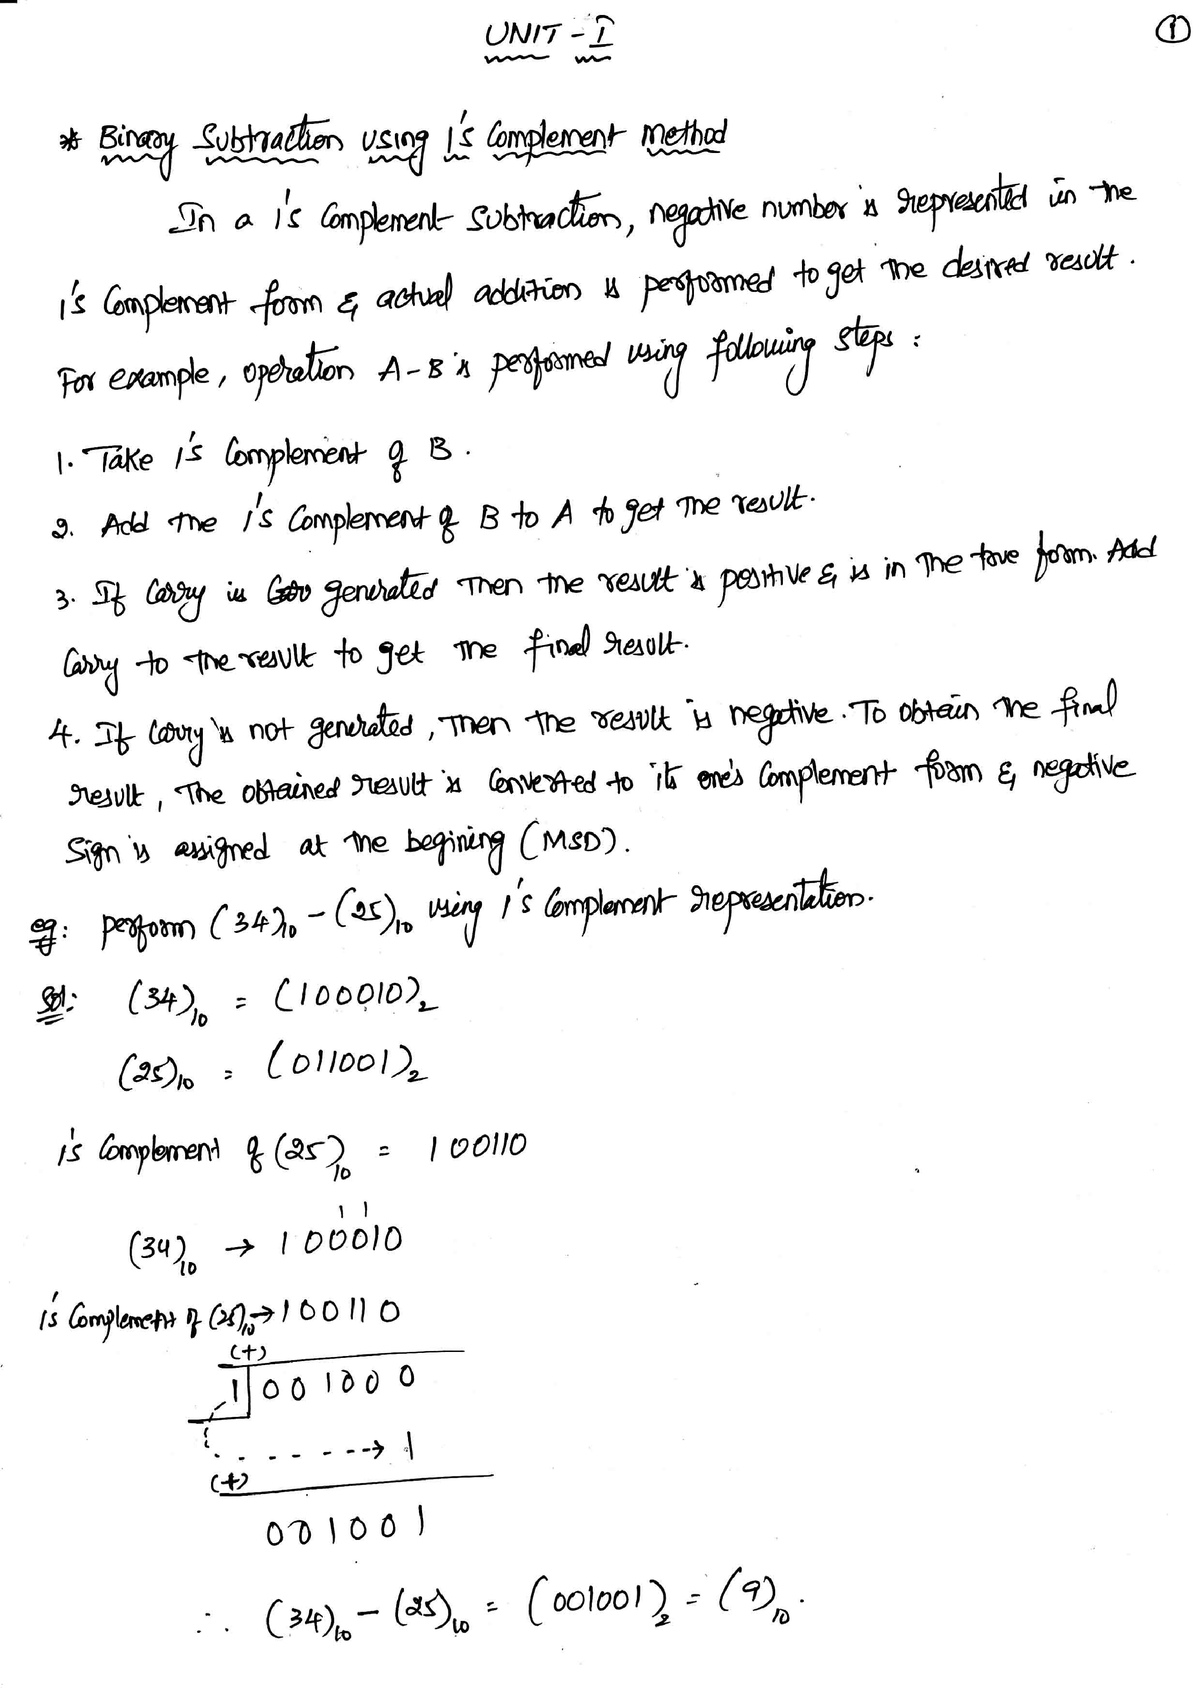 UNIT - I
1
* Binary Subtraction using 1's Complement Method
In a 1's Complement Subtraction, negative number is represented in the
1's Complement form & actual addition is performed to get the desired result.
For example, operation A-B is performed using following steps :
1. Take 1's Complement of B.
2. Add the 1's Complement of B to A to get the result.
3. If Carry is generated Then the result is positive & is in The true form. Add
Carry to the result to get the final result.
4. If Carry is not generated, Then the result is negative. To obtain the final
result, The obtained result is Converted to its one's Complement form & negative
Sign is assigned at the begining (MSD).
eg: perform (34)10 - (25)10 using 1's Complement representation.
Sol: (34)10 = (100010)2
(25)10 = (011001)2
1's Complement of (25)10 = 100110
1 1
(34)10 → 100010
1's Complement of (25)10 → 100110
(+)
1 001000
→ 1
(+)
001001
∴ (34)10 - (25)10 = (001001)2 = (9)10.